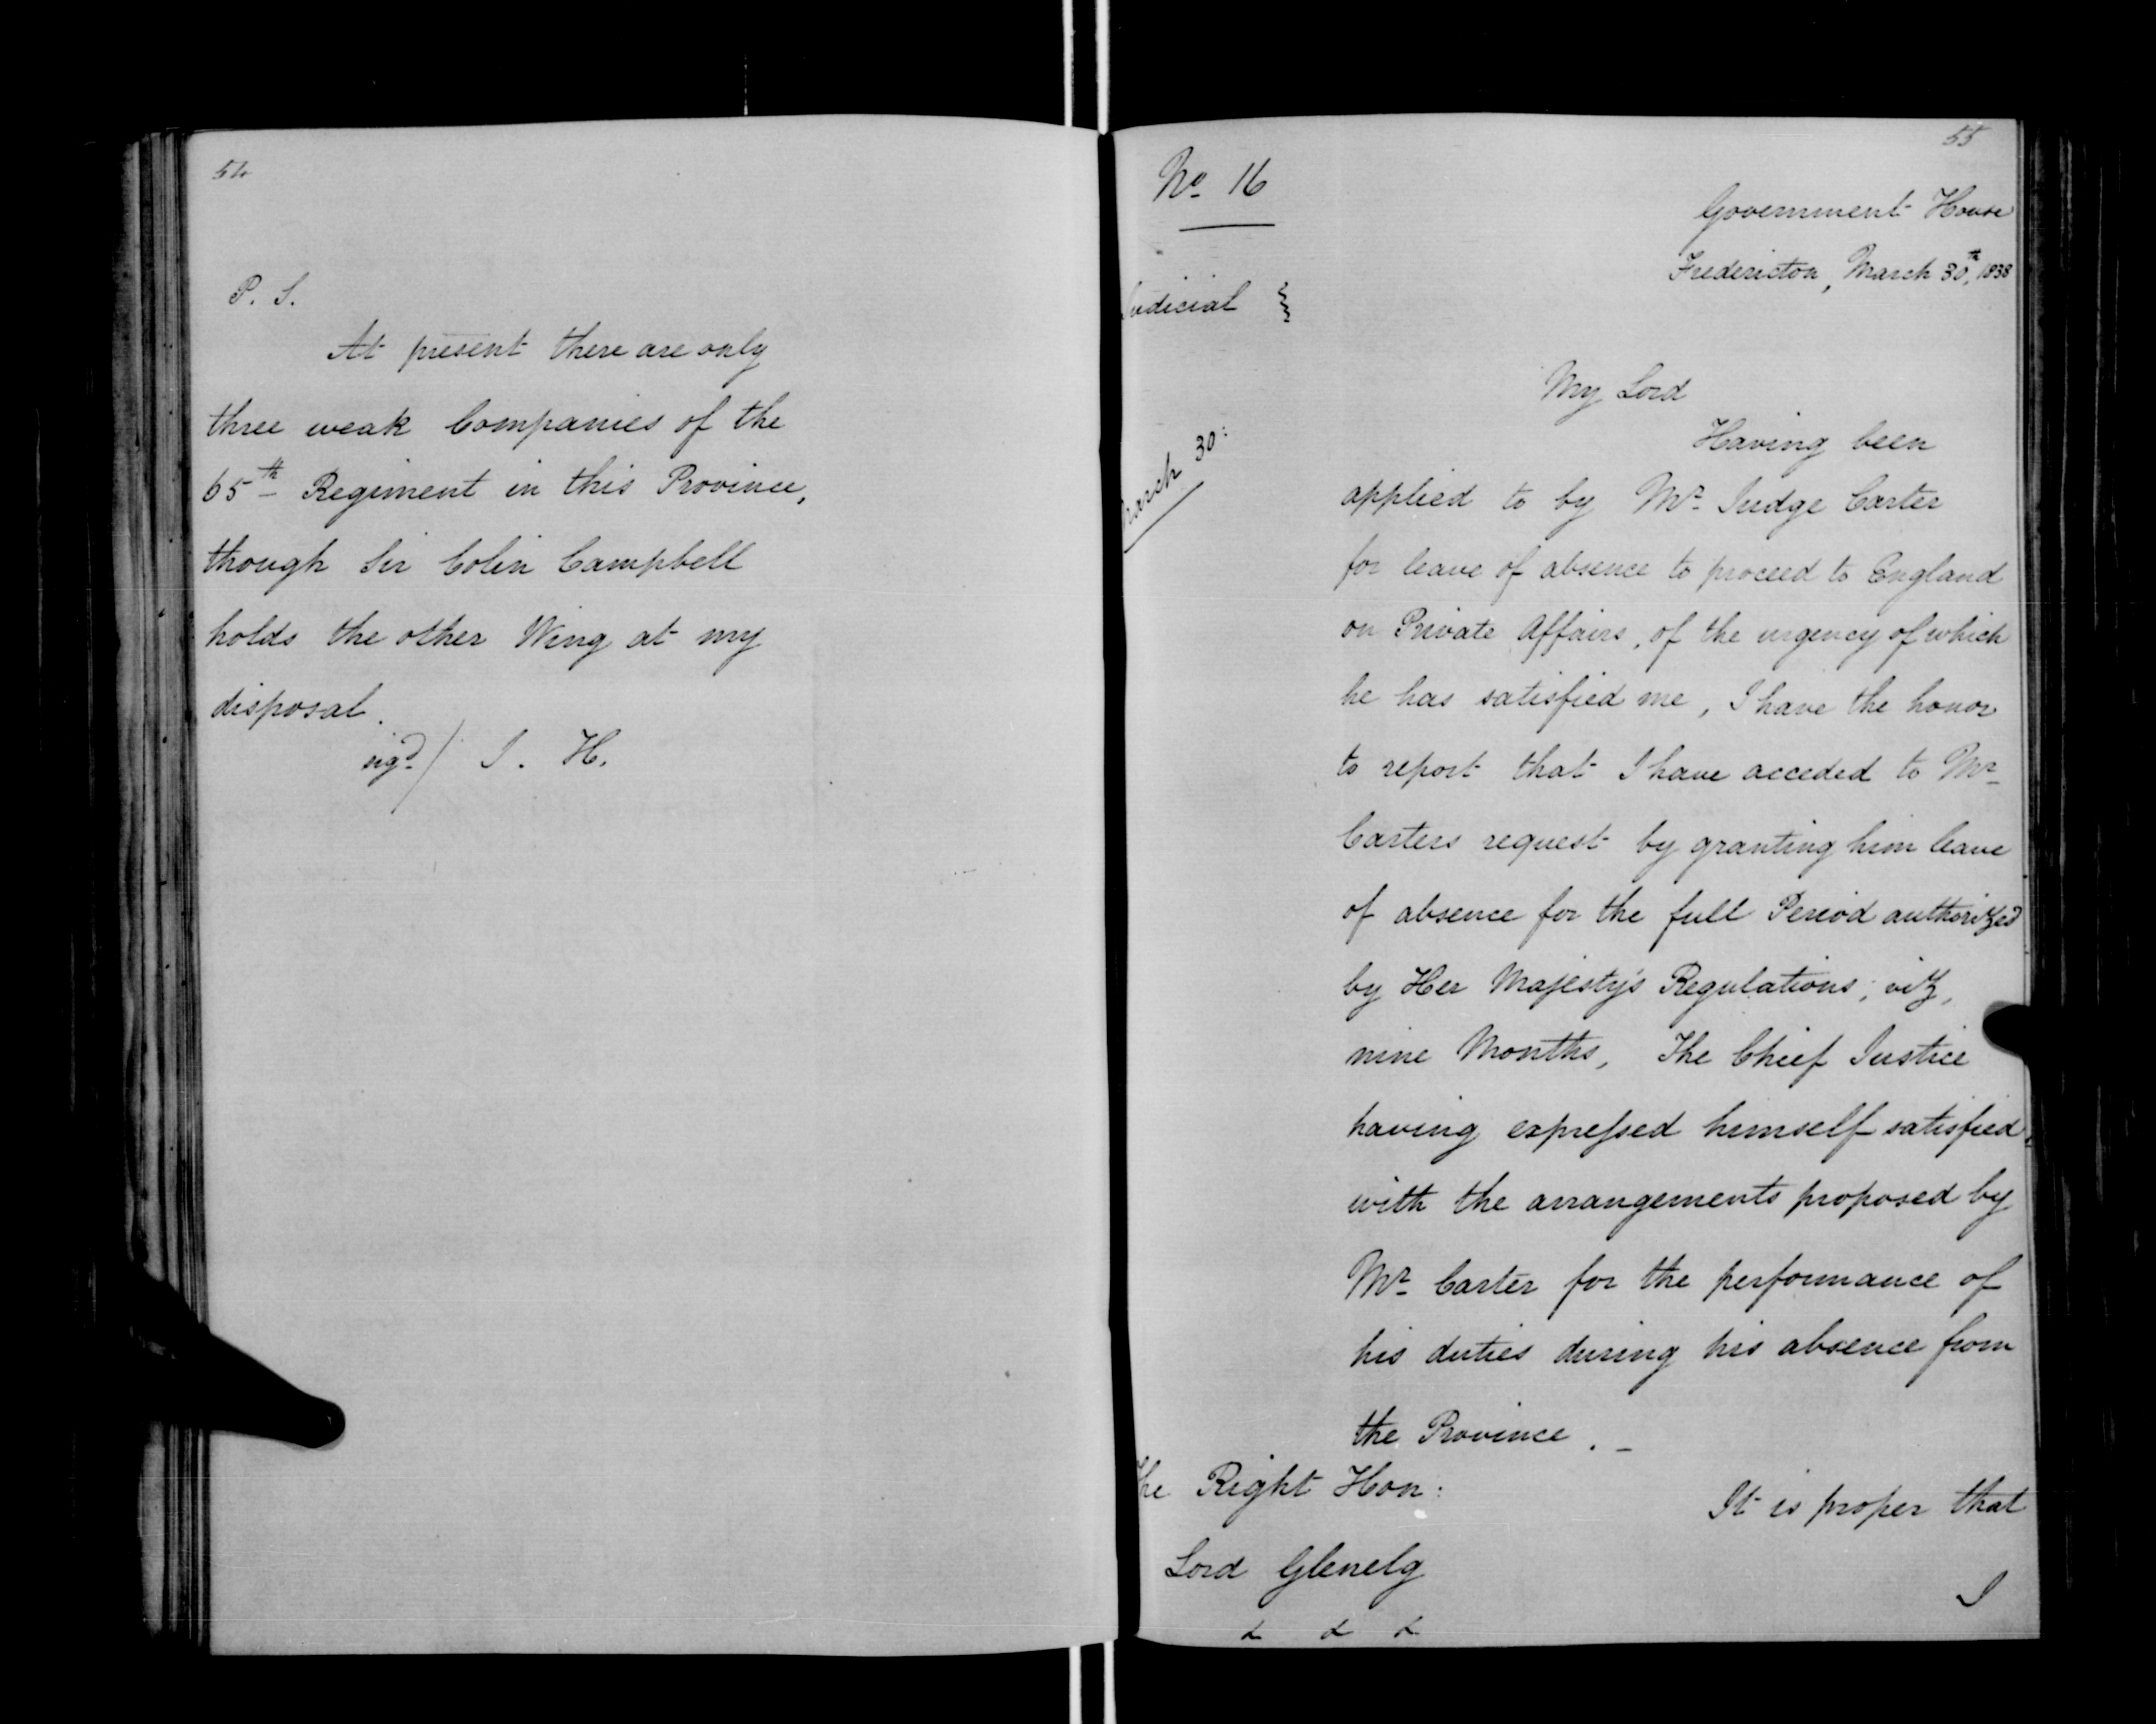 54
P. S.
At present there are only
three weak Companies of the
65th Regiment in this Province,
though Sir Colin Campbell
holds the other Wing at my
disposal.
sigd/ J. H.
55
No 16
Government House
Fredericton, March 30th, 1838
Judicial
March 30:
My Lord
Having been
applied to by Mr Judge Carter
for leave of absence to proceed to England
on Private Affairs, of the urgency of which
he has satisfied me, I have the honor
to report that I have acceded to Mr
Carters request by granting him leave
of absence for the full Period authorized
by Her Majesty's Regulations; viz,
nine Months, The Chief Justice
having expressed himself satisfied,
with the arrangements proposed by
Mr Carter for the performance of
his duties during his absence from
the Province. -
The Right Hon:
Lord Glenelg
& & &
It is proper that
I